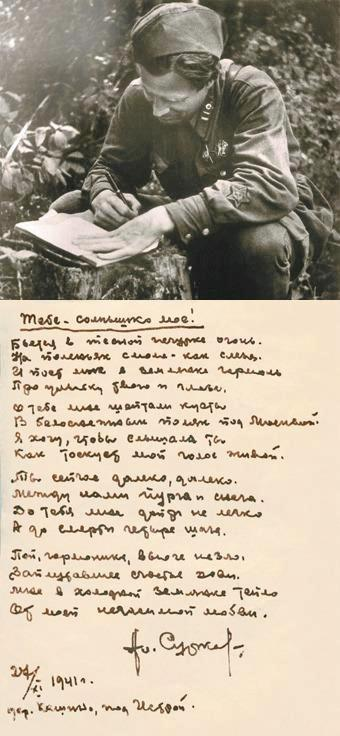 Тебе - солнышко мое!
Бьется в тесной печурке огонь.
На поленьях смола - как слеза.
И поет мне в землянке гармонь
Про улыбку твою и глаза.
О тебе мне шептали кусты
В белоснежных полях под Москвой.
Я хочу, чтобы слышала ты
Как тоскует мой голос живой.
Ты сейчас далеко, далеко.
Между нами снега и снега.
До тебя мне дойти не легко
А до смерти четыре шага.
Пой, гармоника, вьюге назло.
Заплутавшее счастье зови.
Мне в холодной землянке тепло
От моей негасимой любви.
Ал. Сурков.
27/XI 1941 г.
дер. Кашино, под Истрой.